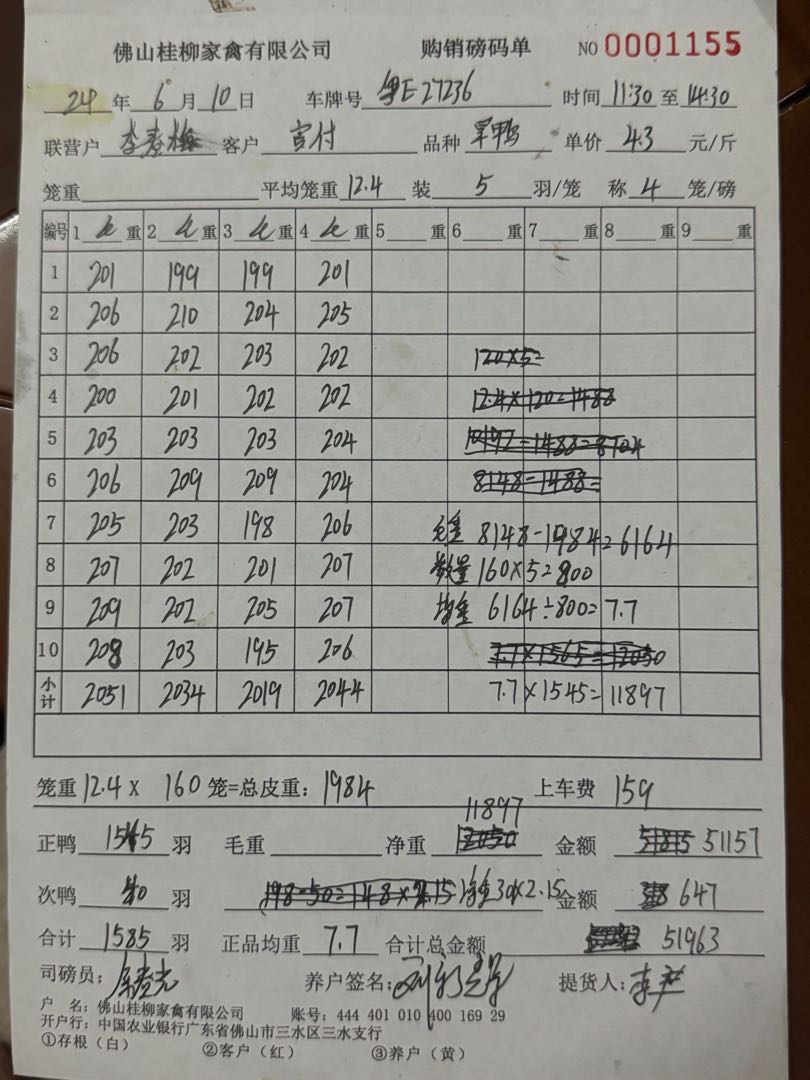 佛山桂柳家禽有限公司 购销磅码单 NO 0001155
24 年 6 月 10 日 车牌号 粤E27236 时间 11:30 至 14:30
联营户 李麦梅 客户 宫付 品种 羊鸭 单价 4.3 元/斤
笼重 平均笼重 12.4 装 5 羽/笼 称 4 笼/磅
编号 1 毛 重 2 毛 重 3 毛 重 4 毛 重 5 重 6 重 7 重 8 重 9 重
1 201 199 199 201
2 206 210 204 205
3 206 202 203 202 120×5=
4 200 201 202 202 12.4×120=1488
5 203 203 203 204
6 206 209 209 204 8148-1488=
7 205 203 198 206 毛重 8148-1984=6164
8 207 202 201 207 数量 160×5=800
9 209 202 205 207 均重 6164÷800=7.7
10 208 203 195 206 7.7×1565=12050
小计 2051 2034 2019 2044 7.7×1545=11897
笼重 12.4 X 160 笼=总皮重: 1984 上车费 159
正鸭 1545 羽 毛重 净重 11897 金额 51157
次鸭 40 羽 198-50=148×2.15 净重 30×2.15 金额 647
合计 1585 羽 正品均重 7.7 合计总金额 51963
司磅员: 养户签名: 提货人:
户 名: 佛山桂柳家禽有限公司 账号: 444 401 010 400 169 29
开户行: 中国农业银行广东省佛山市三水区三水支行
①存根(白) ②客户(红) ③养户(黄)